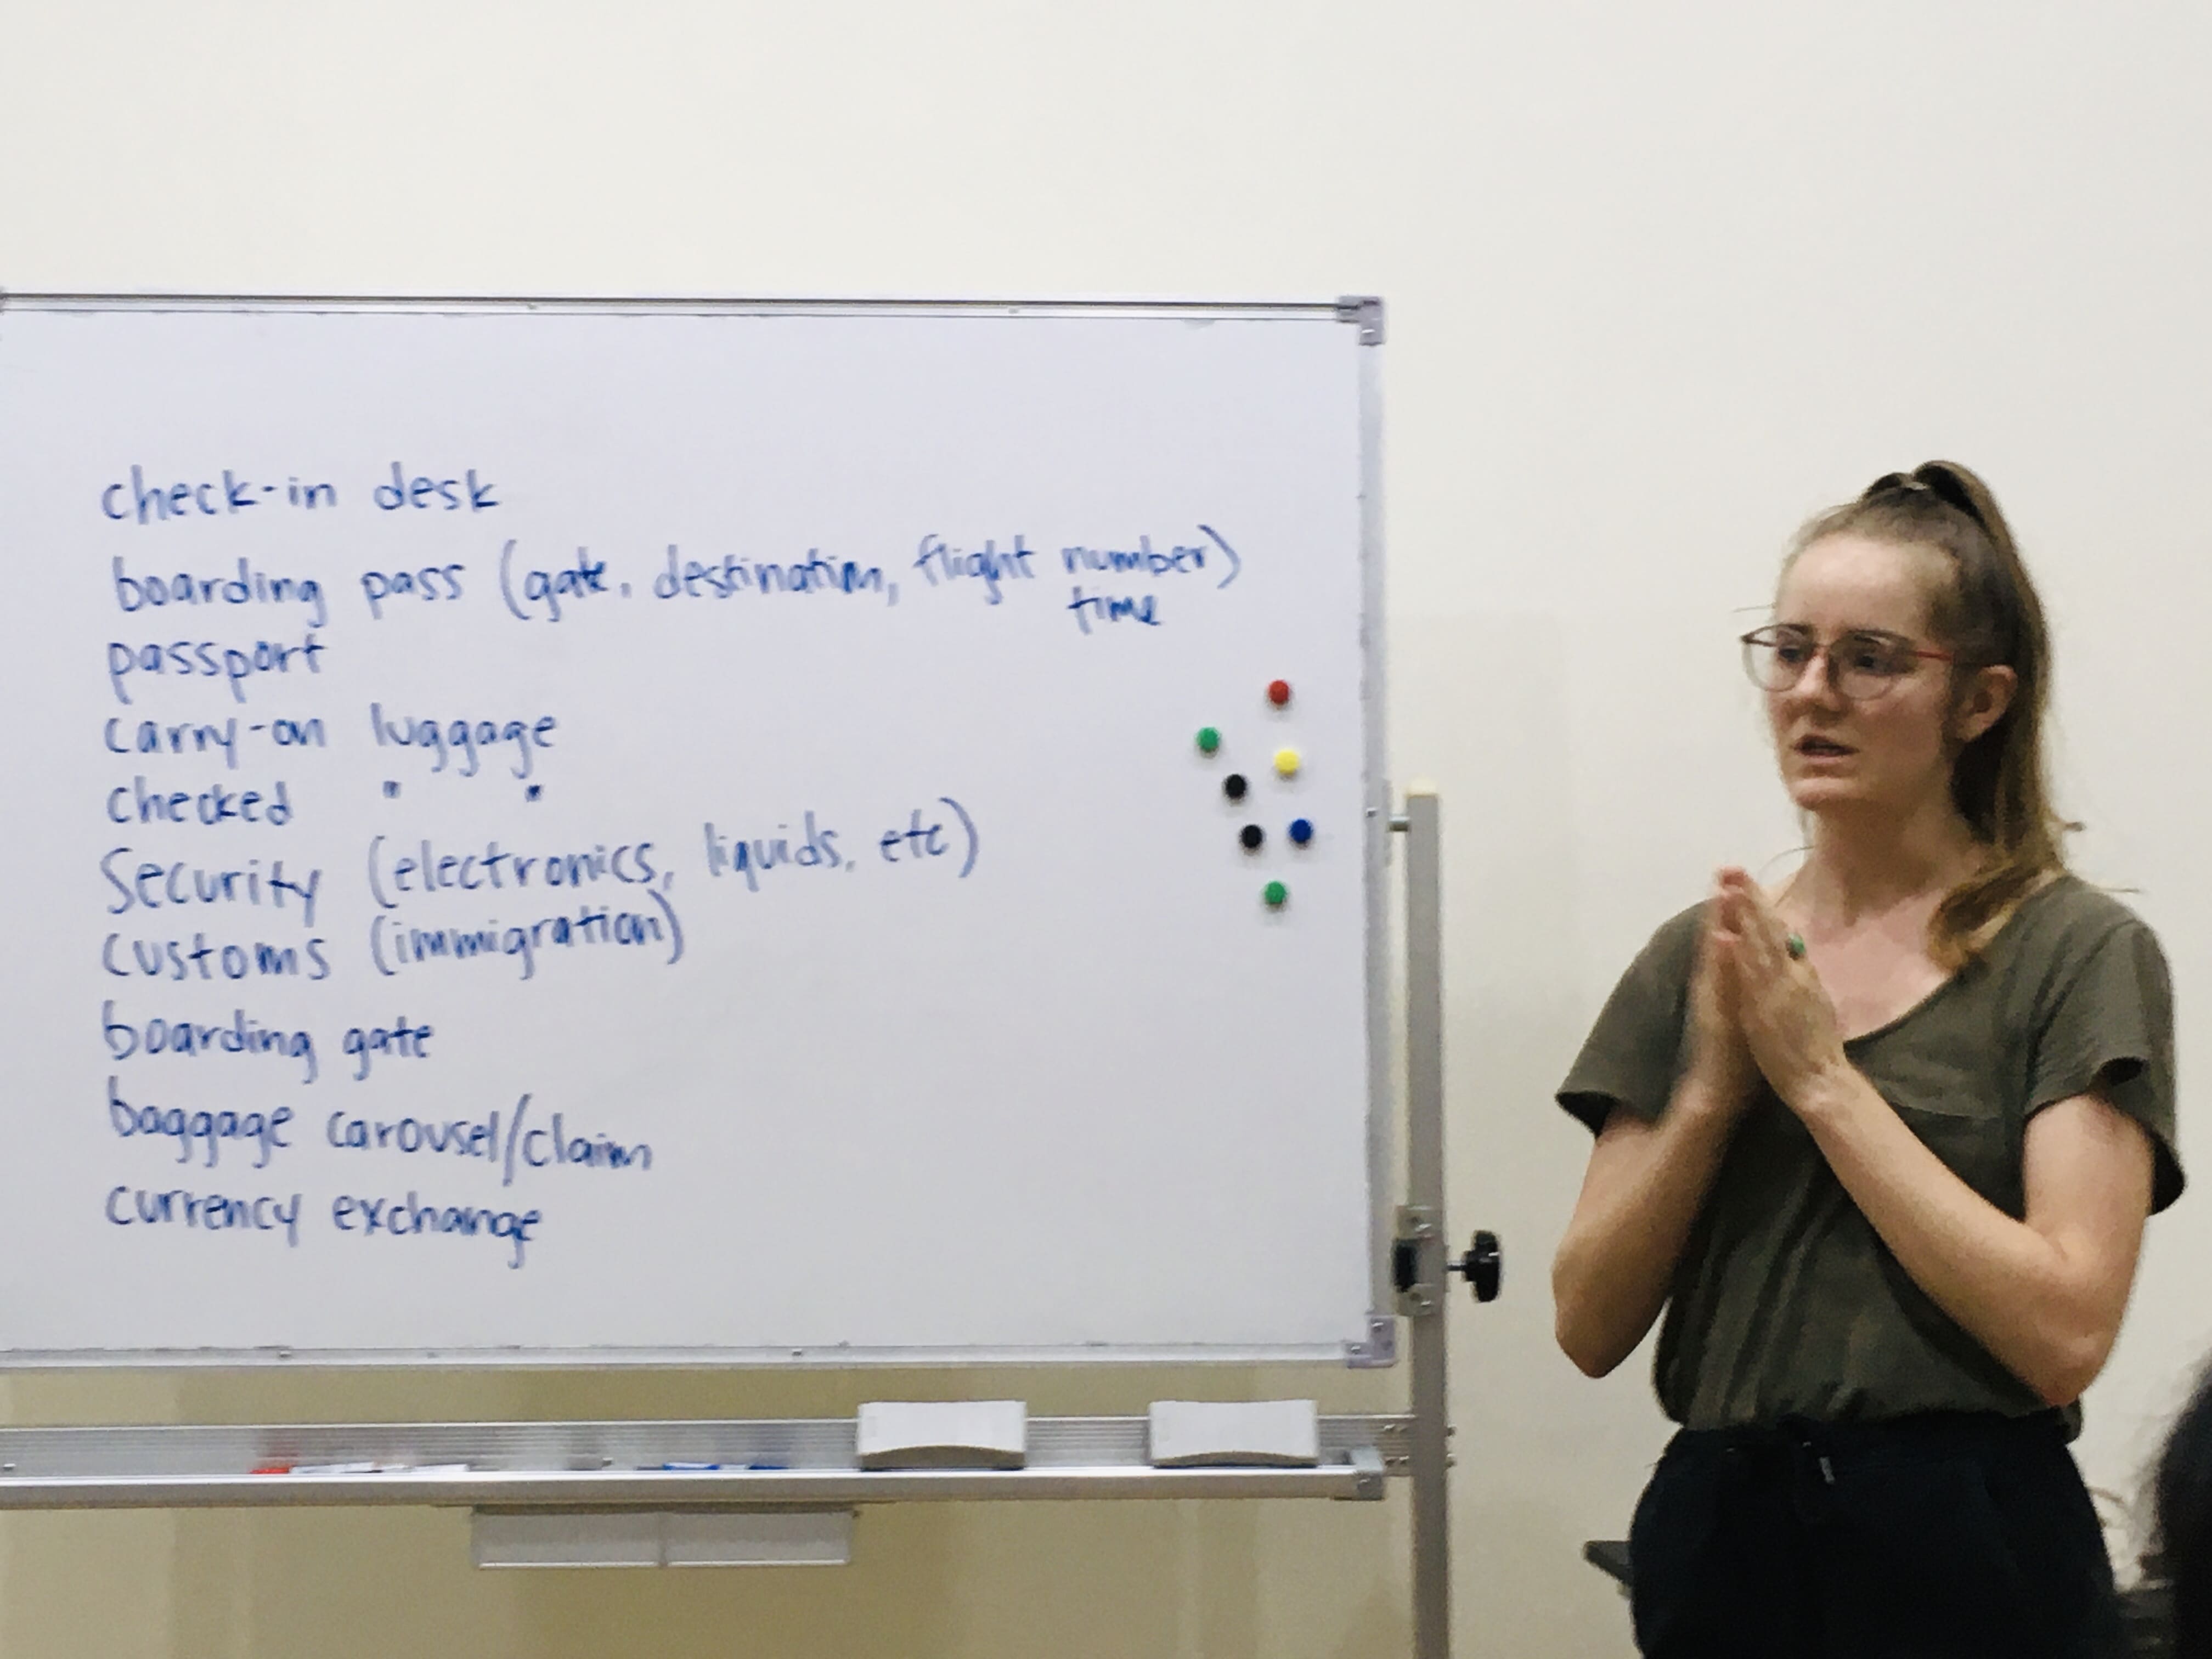 check-in desk
boarding pass (gate, destination, flight number)
time
passport
carry-on luggage
checked " "
Security (electronics, liquids, etc)
customs (immigration)
boarding gate
baggage carousel/claim
currency exchange